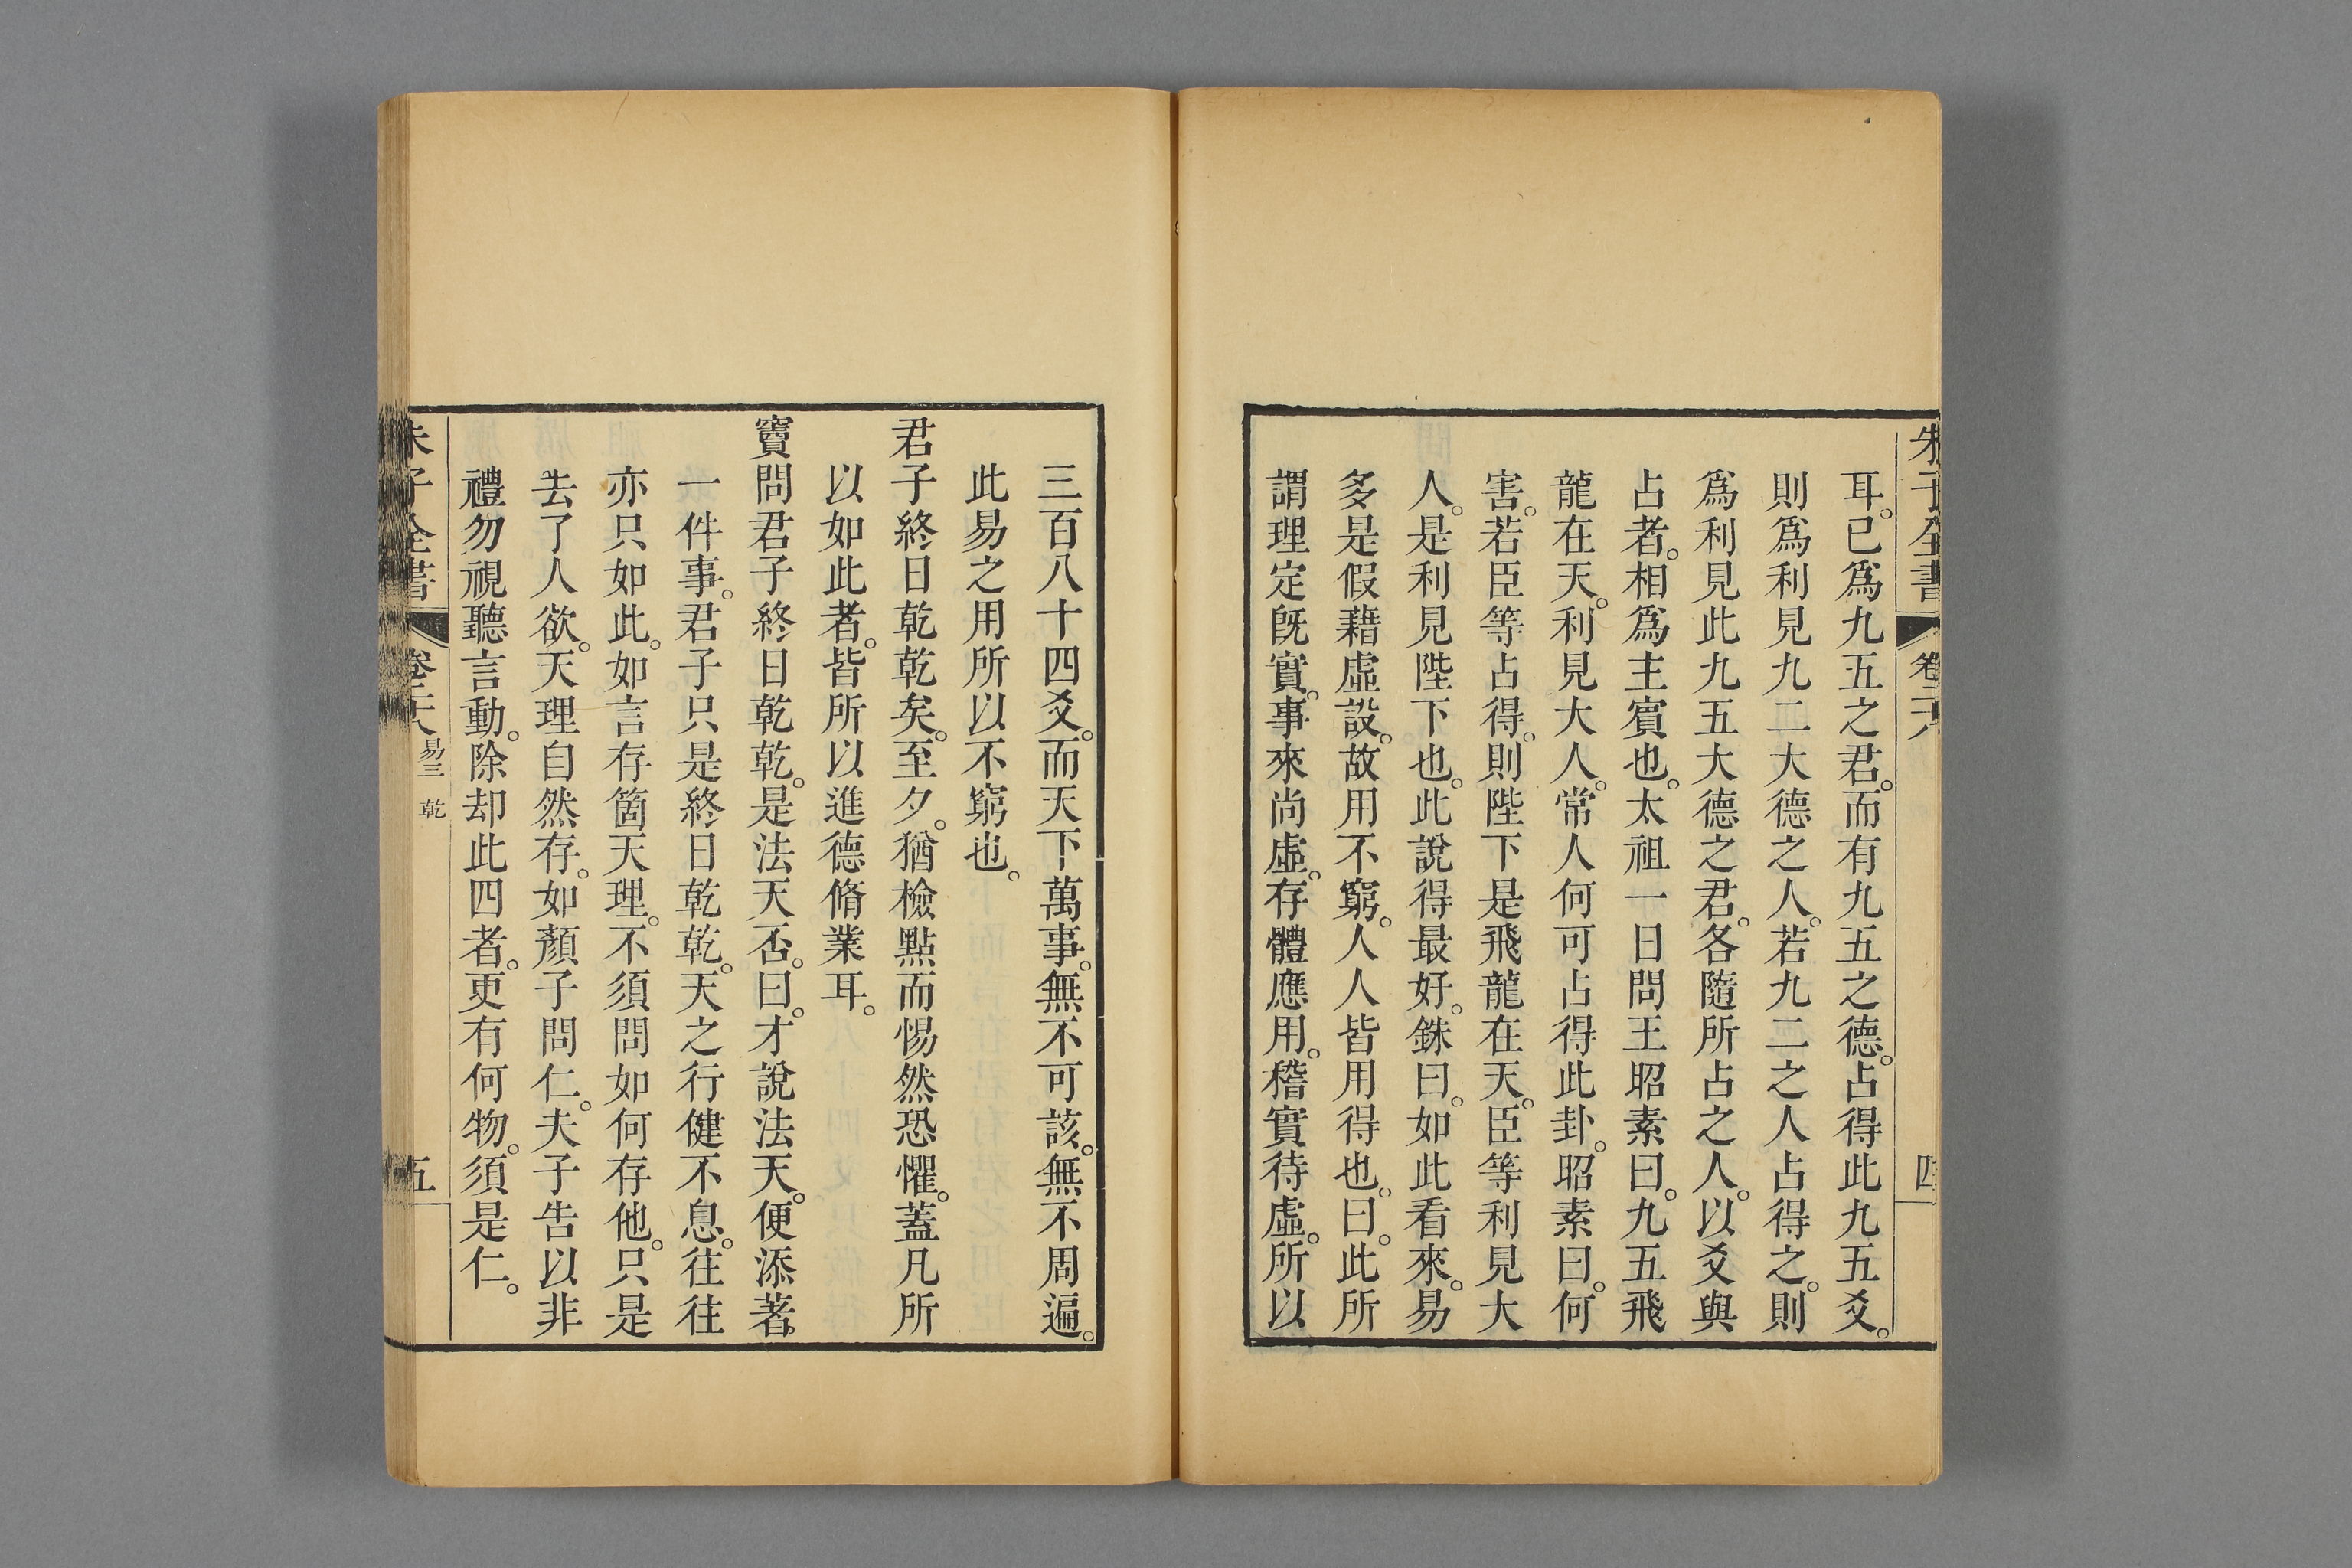 朱子全書 卷二十八 四
耳。已爲九五之君。而有九五之德。占得此九五爻。
則爲利見九二大德之人。若九二之人占得之。則
爲利見此九五大德之君。各隨所占之人。以爻與
占者。相爲主賓也。太祖一日問王昭素曰。九五飛
龍在天。利見大人。常人何可占得此卦。昭素曰。何
害。若臣等占得。則陛下是飛龍在天。臣等利見大
人。是利見陛下也。此說得最好。銖曰。如此看來。易
多是假藉虛設。故用不窮。人人皆用得也。曰。此所
謂理定旣實。事來尚虛。存體應用。稽實待虛。所以
三百八十四爻。而天下萬事。無不可該。無不周遍。
此易之用所以不窮也。
君子終日乾乾矣。至夕。猶檢點而惕然恐懼。蓋凡所
以如此者。皆所以進德脩業耳。
竇問君子終日乾乾。是法天否。曰。才說法天。便添著
一件事。君子只是終日乾乾。天之行健不息。往往
亦只如此。如言存箇天理。不須問如何存他。只是
去了人欲。天理自然存。如顏子問仁。夫子告以非
禮勿視聽言動。除却此四者。更有何物。須是仁。
朱子全書 卷二十八 易三 乾 五